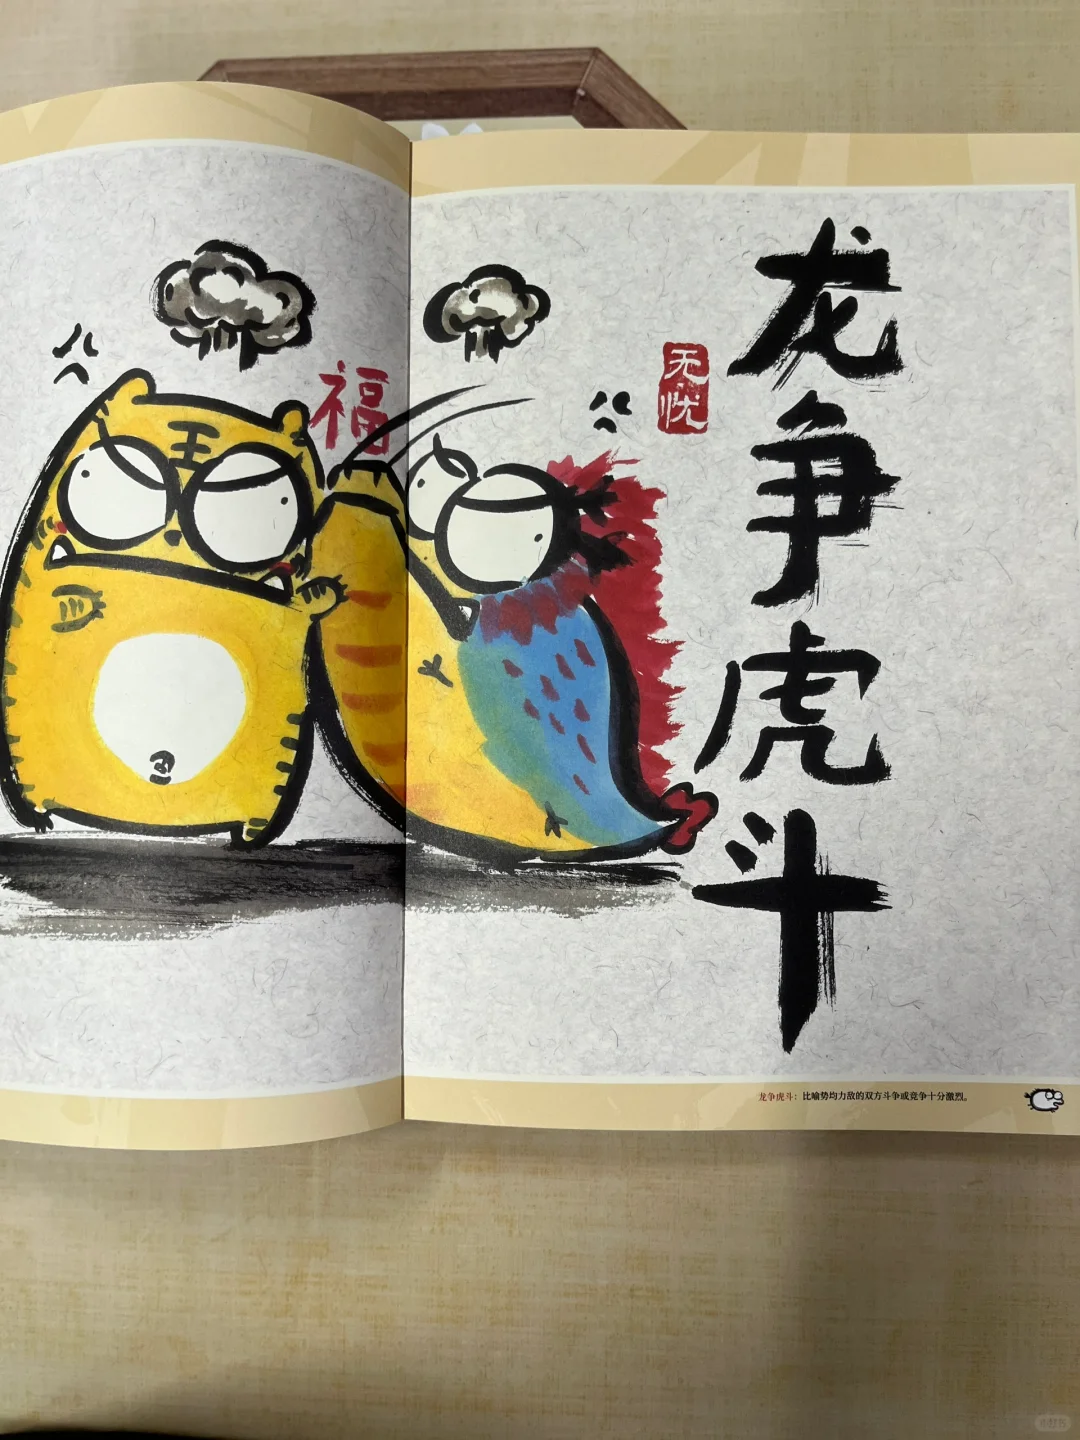 龙争虎斗
无忧
福
王
龙争虎斗：比喻势均力敌的双方斗争或竞争十分激烈。